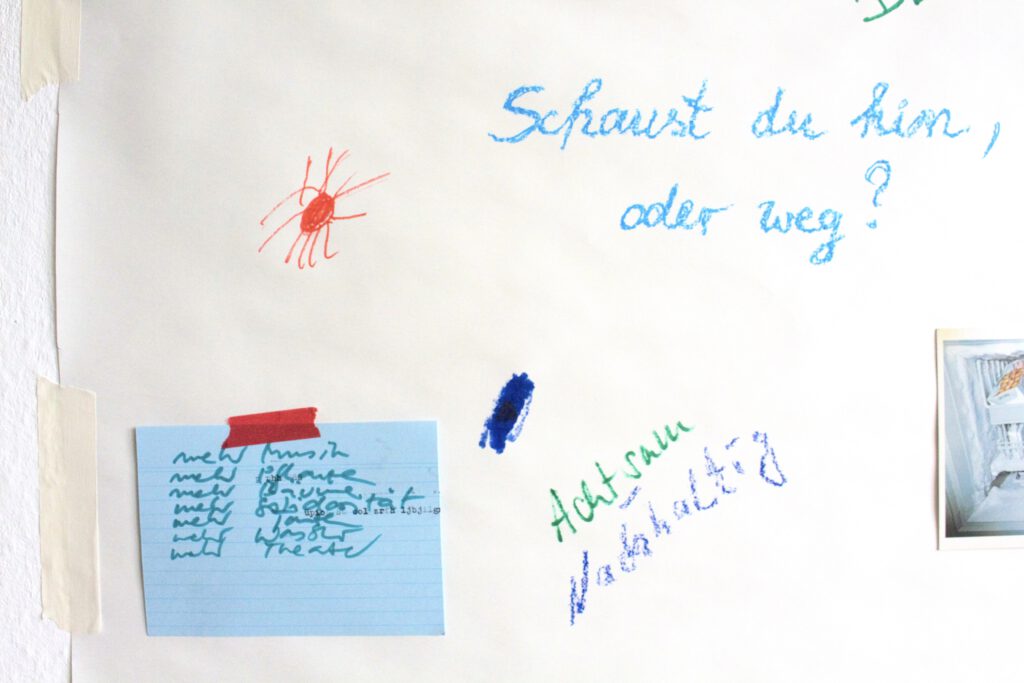 Schaust du hin,
oder weg?
mehr Musik
mehr
mehr Bäume
mehr Solidarität
mehr
mehr Wasser
mehr Theater
Achtsam
Nachhaltig